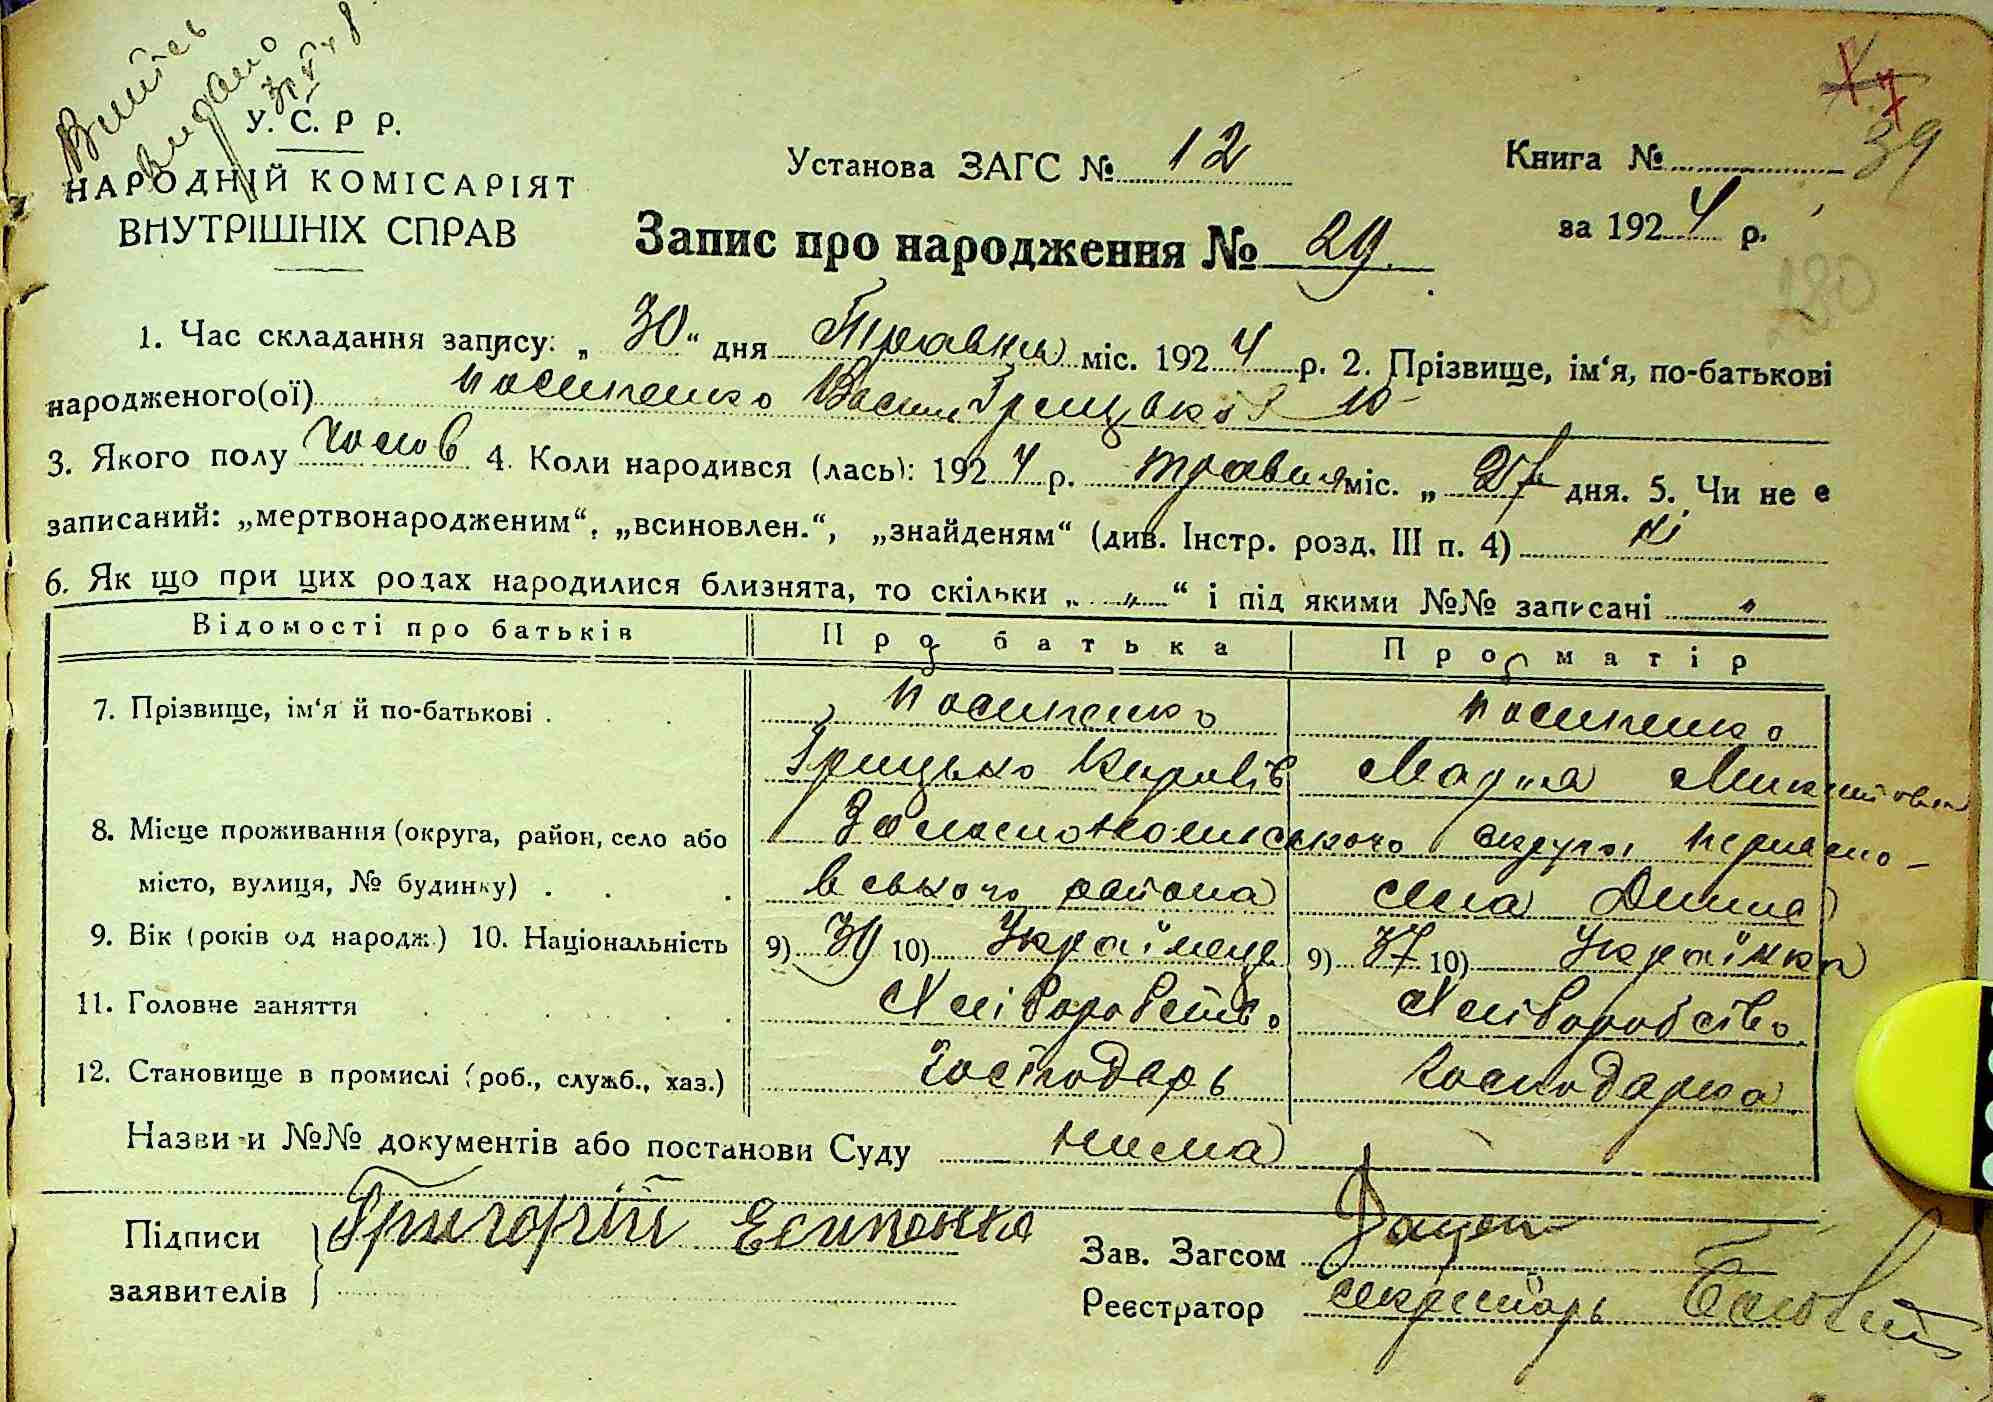 Витяг
видано
У. С. Р Р.
НАРОДНІЙ КОМІСАРІЯТ
ВНУТРІШНІХ СПРАВ
Установа ЗАГС № 12
Книга №
39
за 1924 р.
Запис про народження № 29.
180
1. Час складання запису: „ 30 “ дня Травня міс. 1924 р. 2. Прізвище, ім‘я, по-батькові
народженого(ої) Йосипенко Васил Грицьків
3. Якого полу чолов 4. Коли народився (лась): 1924 р. травня міс. „ 27 дня. 5. Чи не є
записаний: „мертвонародженим“, „всиновлен.“, „знайденям“ (див. Інстр. розд. III п. 4) Ні
6. Як що при цих родах народилися близнята, то скільки „ „ “ і під якими №№ записані „
Відомості про батьків Про батька Про матір
7. Прізвище, ім‘я й по-батькові . Йосипенко Йосипенко
Грицько Карпівіч Мария
8. Місце проживання (округа, район, село або Золотоноського округи
місто, вулиця, № будинку) . вського района села
9. Вік (років од народж.) 10. Національність 9) 39 10) Українець 9) 37 10) Українка
11. Головне заняття Хліборобство Хліборобство
12. Становище в промислі (роб., служб., хаз.) Господарь Господарка
Назви и №№ документів або постанови Суду нима
Підписи Григорій Есипенко
заявителів
Зав. Загсом
Реєстратор секретарь